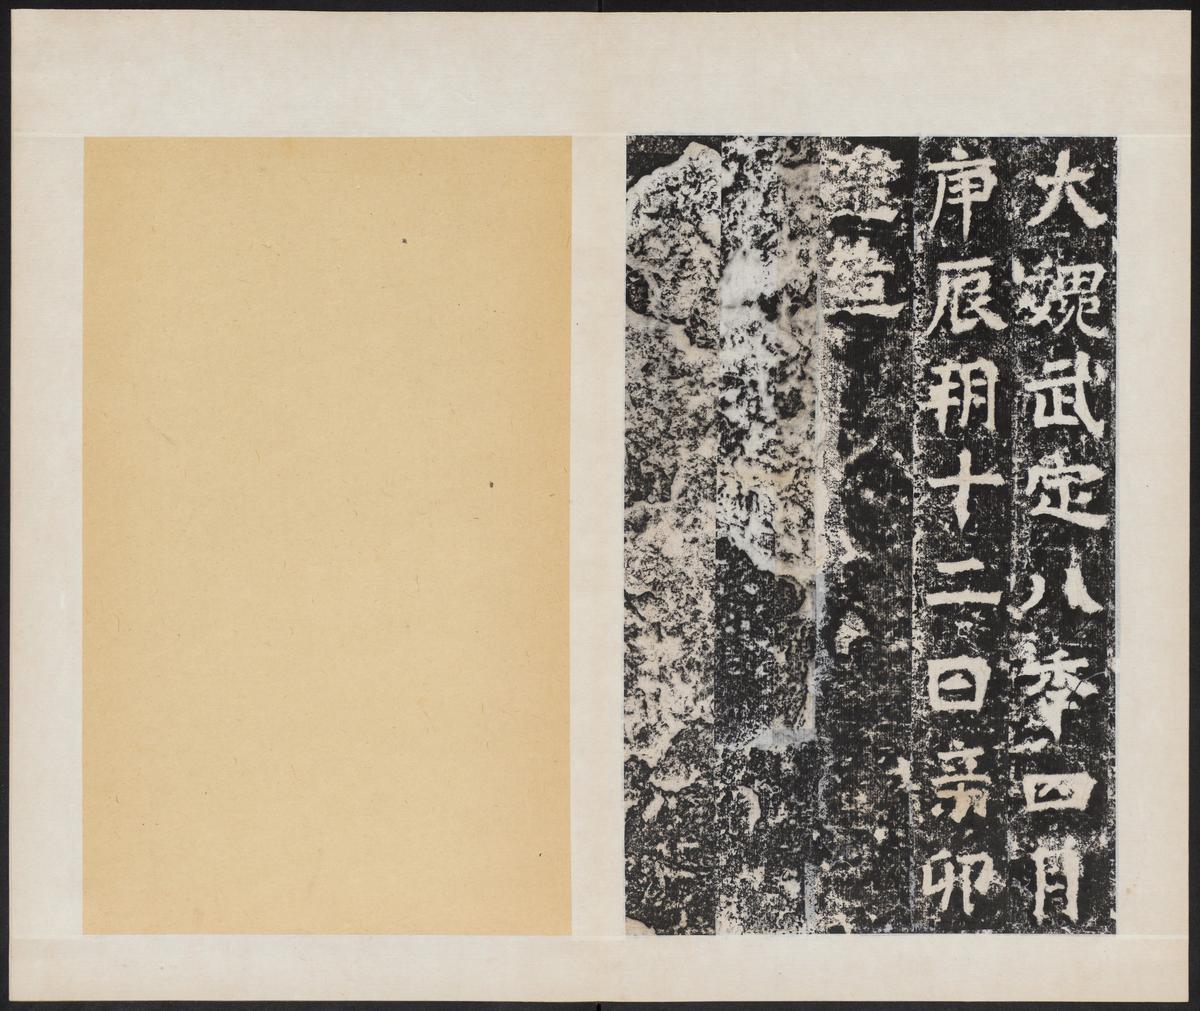 大魏武定八年四月
庚辰朔十二日辛卯
建造